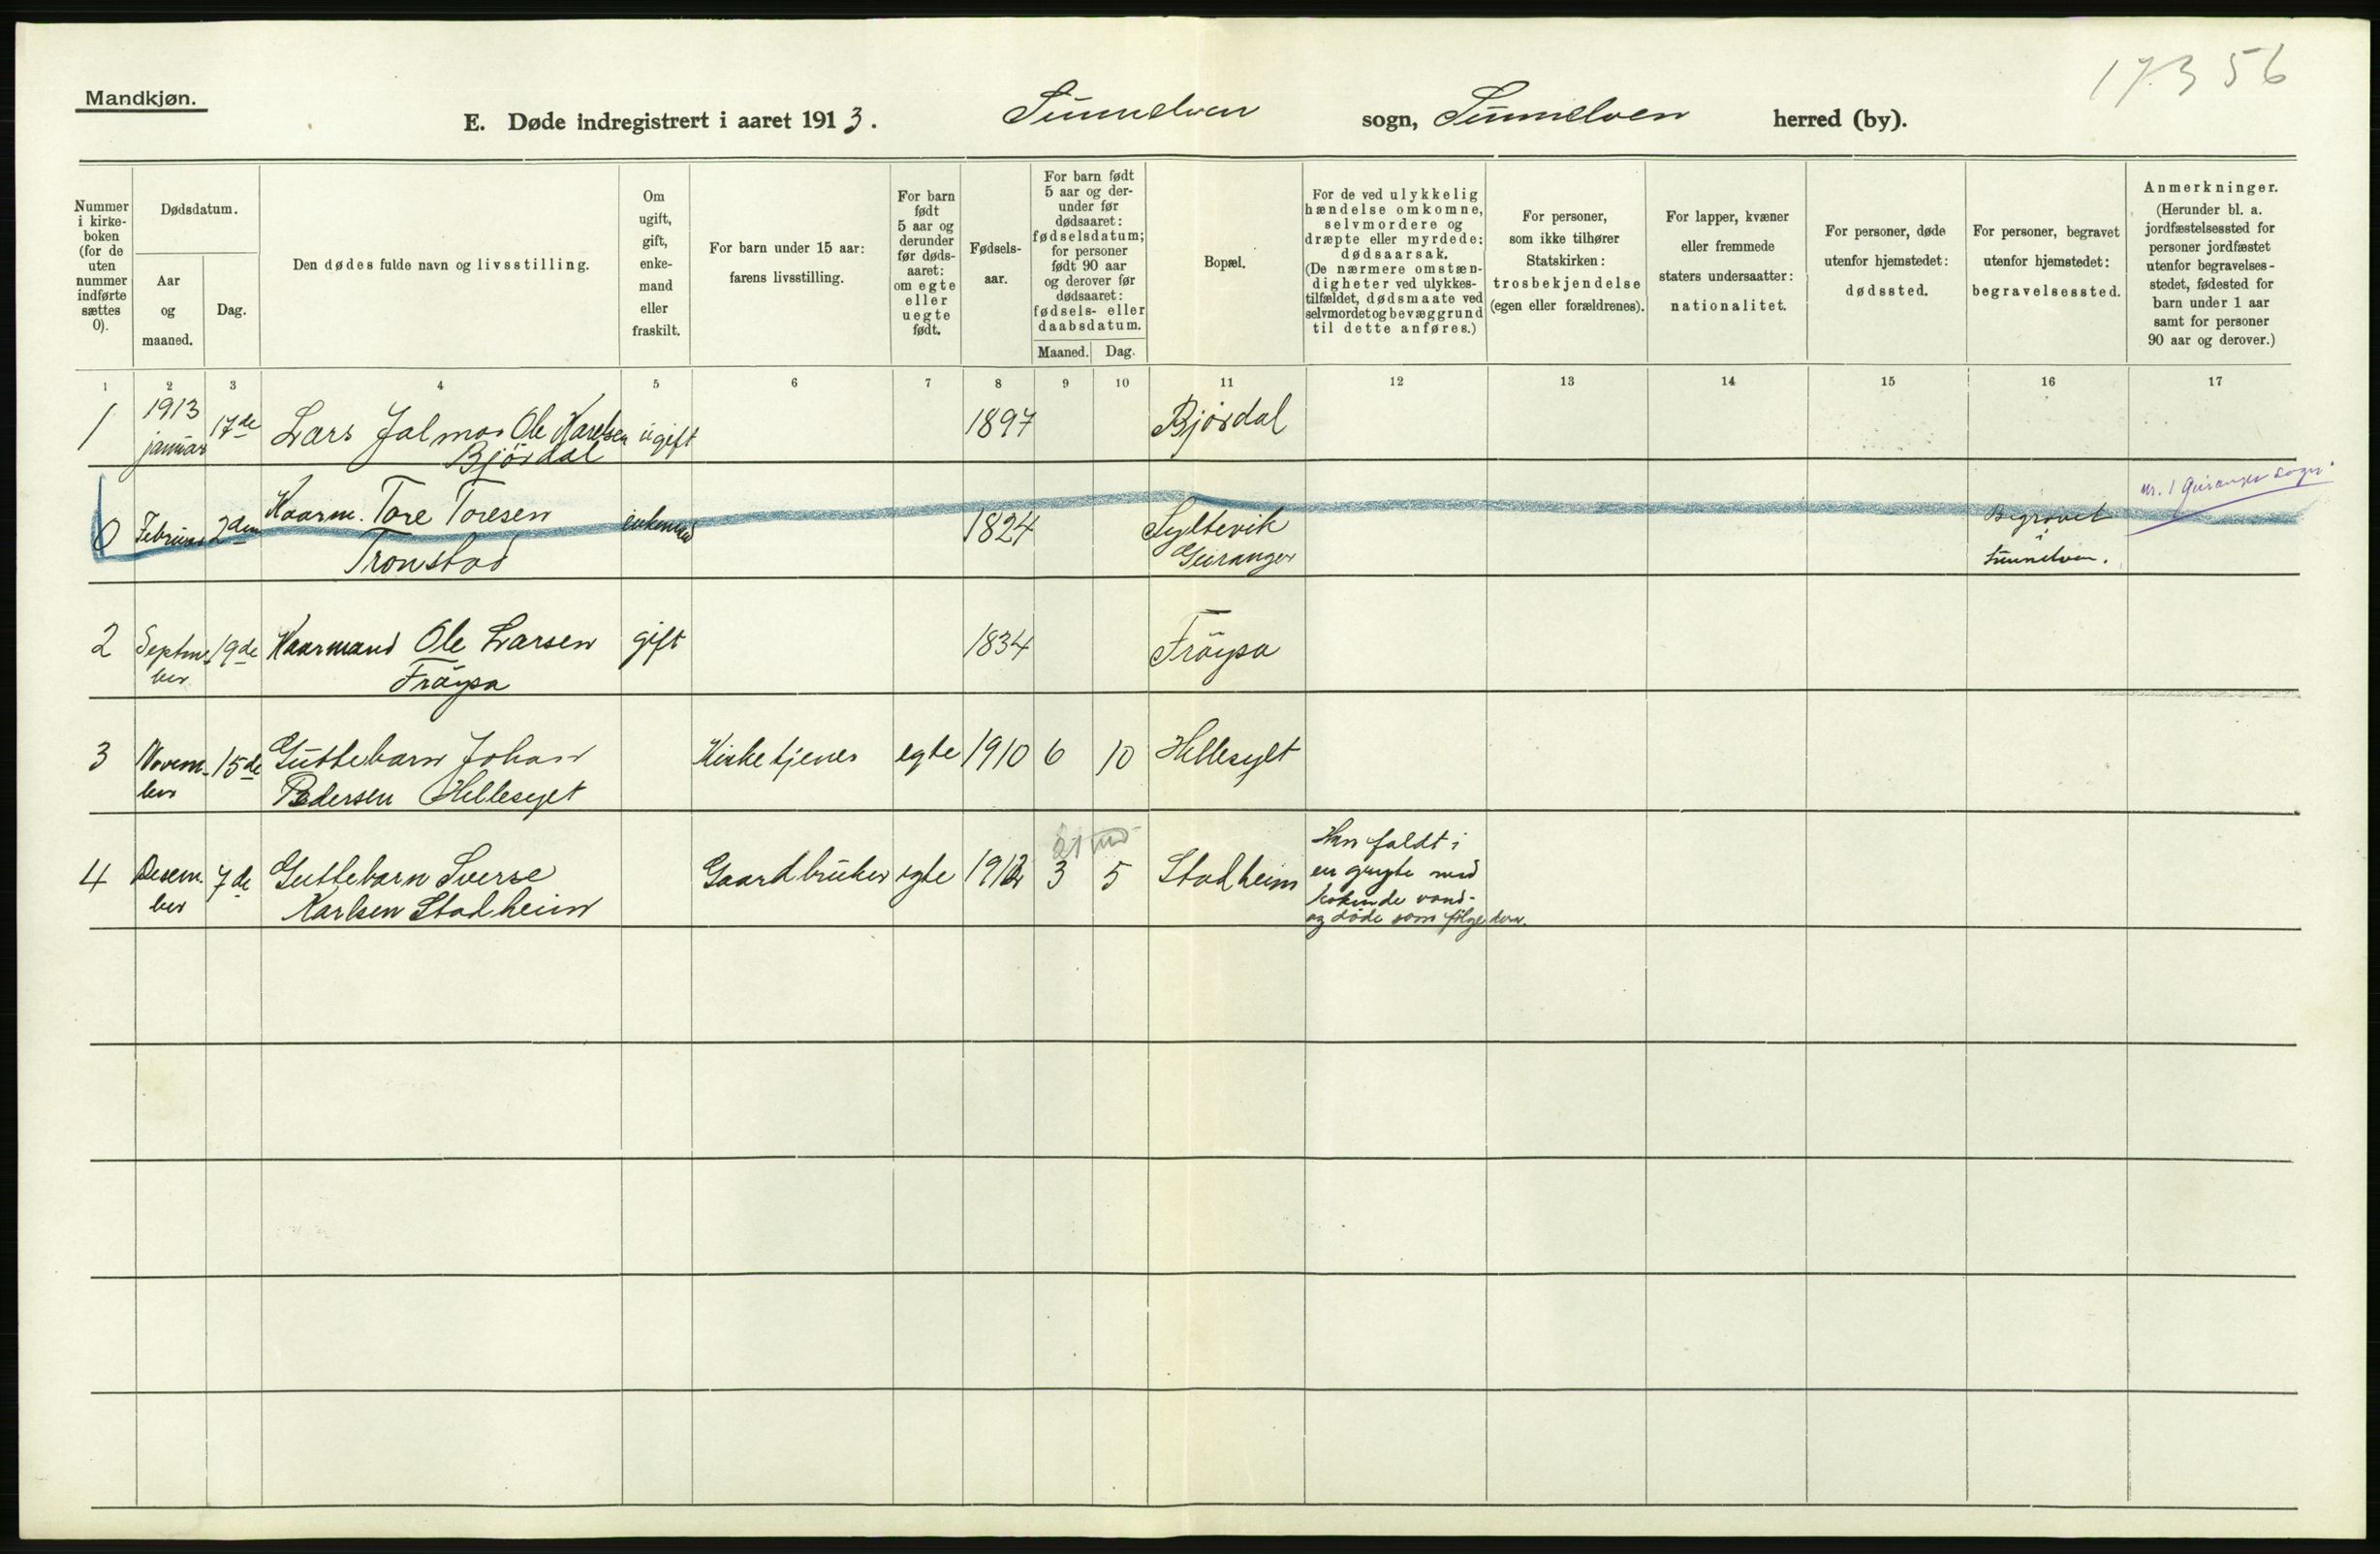 17.3 56
Mandkjøn.
E. Døde indregistrert i aaret 1913. Sunnelven sogn, Sunnelven herred (by).
Nummer i kirke-boken (for de uten nummer indførte sættes 0).
Dødsdatum.
Aar og maaned.
Dag.
Den dødes fulde navn og livsstilling.
Om ugift, gift, enke-mand eller fraskilt.
For barn under 15 aar: farens livsstilling.
For barn født 5 aar og derunder før døds-aaret: om egte eller uegte født.
Fødsels-aar.
For barn født 5 aar og der-under før dødsaaret: fødselsdatum; for personer født 90 aar og derover før dødsaaret: fødsels- eller daabsdatum.
Maaned. Dag.
Bopæl.
For de ved ulykkelig hændelse omkomne, selvmordere og dræpte eller myrdede: dødsaarsak. (De nærmere omstæn-digheter ved ulykkes-tilfældet, dødsmaate ved selvmordet og bevæggrund til dette anføres.)
For personer, som ikke tilhører Statskirken: trosbekjendelse (egen eller forældrenes).
For lapper, kvæner eller fremmede staters undersaatter: nationalitet.
For personer, døde utenfor hjemstedet: dødssted.
For personer, begravet utenfor hjemstedet: begravelsessted.
Anmerkninger. (Herunder bl. a. jordfæstelsessted for personer jordfæstet utenfor begravelses-stedet, fødested for barn under 1 aar samt for personer 90 aar og derover.)
1 2 3 4 5 6 7 8 9 10 11 12 13 14 15 16 17
1 1913 januar 17de Lars Jalmar Ole Karlsen ugift 1897 Bjørdal
Bjørdal
0 Februar 2den Kaarm. Tore Toresen enkemand 1824 Syltevik Begravet nr. 1 Geiranger sogn.
Tronstad Geiranger Sunnelven.
2 Septem 19de Kaarmand Ole Larsen gift 1834 Frøysa
ber Frøysa
3 Novem- 15de Guttebarn Johan Kirketjener egte 1910 6 10 Hellesylt
ber Pedersen Hellesylt
21 md
4 Desem- 7de Guttebarn Sverre Gaardbruker egte 1912 3 5 Stadheim Han faldt i
ber Karlsen Stadheim en gryte med
kokende vand-
og døde som følge derav.